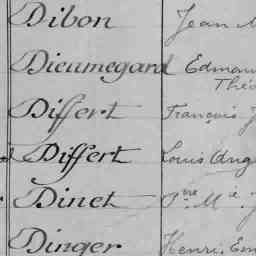 Dibon Jean
Dieumegard Edmon
Théo
Differt François J
Differt Louis Aug
Dinet Pre Mie J
Dinger Henri Em